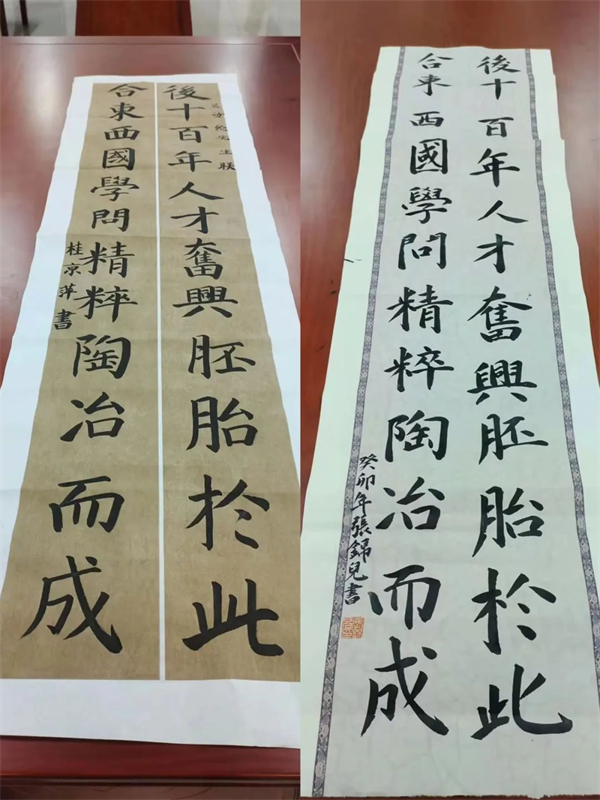 後十百年人才奮興胚胎於此
合東西國學問精粹陶冶而成
桂京萍書
後十百年人才奮興胚胎於此
合東西國學問精粹陶冶而成
癸卯年張錦兒書